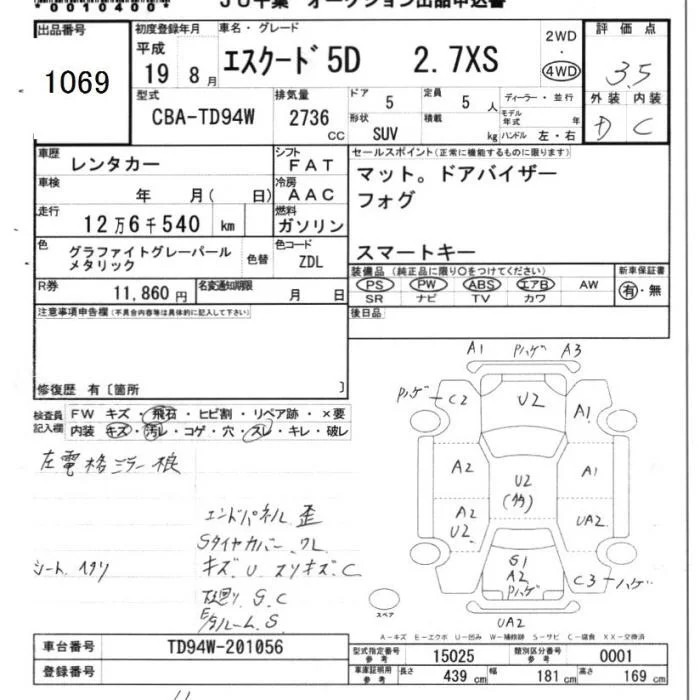 *00104000*
JU千葉 オークション出品申込書
出品番号
1069
初度登録年月
平成
19 8月
車名・グレード
エスクード5D 2.7XS
2WD
・
4WD
評価点
3.5
外装 内装
D C
型式
CBA-TD94W
排気量
2736
CC
ドア 5
定員 5人
形状 SUV
積載 kg
ディーラー・並行
モデル年式 年
ハンドル 左・右
車歴
レンタカー
シフト
FAT
車検
年 月( 日)
冷房
AAC
走行
12万6千540 km
燃料
ガソリン
色
グラファイトグレーパール
メタリック
色替
色コード
ZDL
R券
11,860円
名変通知期限
月 日
セールスポイント(正常に機能するものに限ります)
マット。ドアバイザー
フォグ
スマートキー
装備品(純正品に限り○をつけてください)
PS PW ABS エアB AW
SR ナビ TV カワ
新車保証書
有・無
後日品
注意事項申告欄(不具合内容等は具体的に記入して下さい)
修復歴 有〔箇所 〕
検査員
記入欄
FW キズ・飛石・ヒビ割・リペア跡・×要
内装 キズ・汚レ・コゲ・穴・スレ・キレ・破レ
左電格ミラー
エンドパネル歪
Sタイヤカバークレ
シート ヘタリ
キズ、U スリキズ、C
下廻り S.C
Eタルーム.S
A1 Pハゲ A3
Pハゲ C2
U2
A1
A2
A1
U2
A2
U2
UA2
G1
A2
Pハゲ
C3 ハゲ
UA2
スペア
A-キズ E-エクボ U-凹み W-補修跡 S-サビ C-腐食 XX-交換済
車台番号
TD94W-201056
登録番号
型式指定番号
参考
15025
類別区分番号
参考
0001
車庫証明用
参考
長さ 439 cm
幅 181 cm
高さ 169 cm